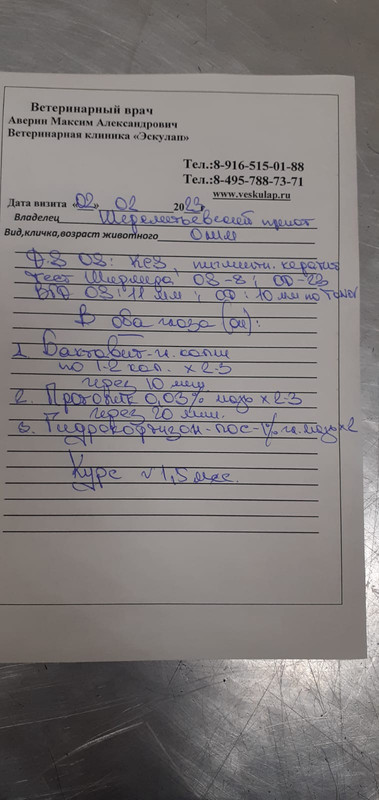 Ветеринарный врач
Аверин Максим Александрович
Ветеринарная клиника «Эскулап»
Тел.:8-916-515-01-88
Тел.:8-495-788-73-71
www.veskulap.ru
Дата визита «02» 02 2023г
Владелец Шереметьевский приют
Вид,кличка,возраст животного
DS OS: пигментн. кератит
Тест Ширмера, OS-8; OD-23
ВГД OS: 11 мм; OD: 10 мм по Tonov
В оба глаза (ou):
1. капли
по 1-2 кап. x 2-3
через 10 мин
2. 0,03% мазь x 2-3
через 20 мин.
3. Гидрокортизон-пос-1% гл. мазь x2
Курс ~1,5 мес.